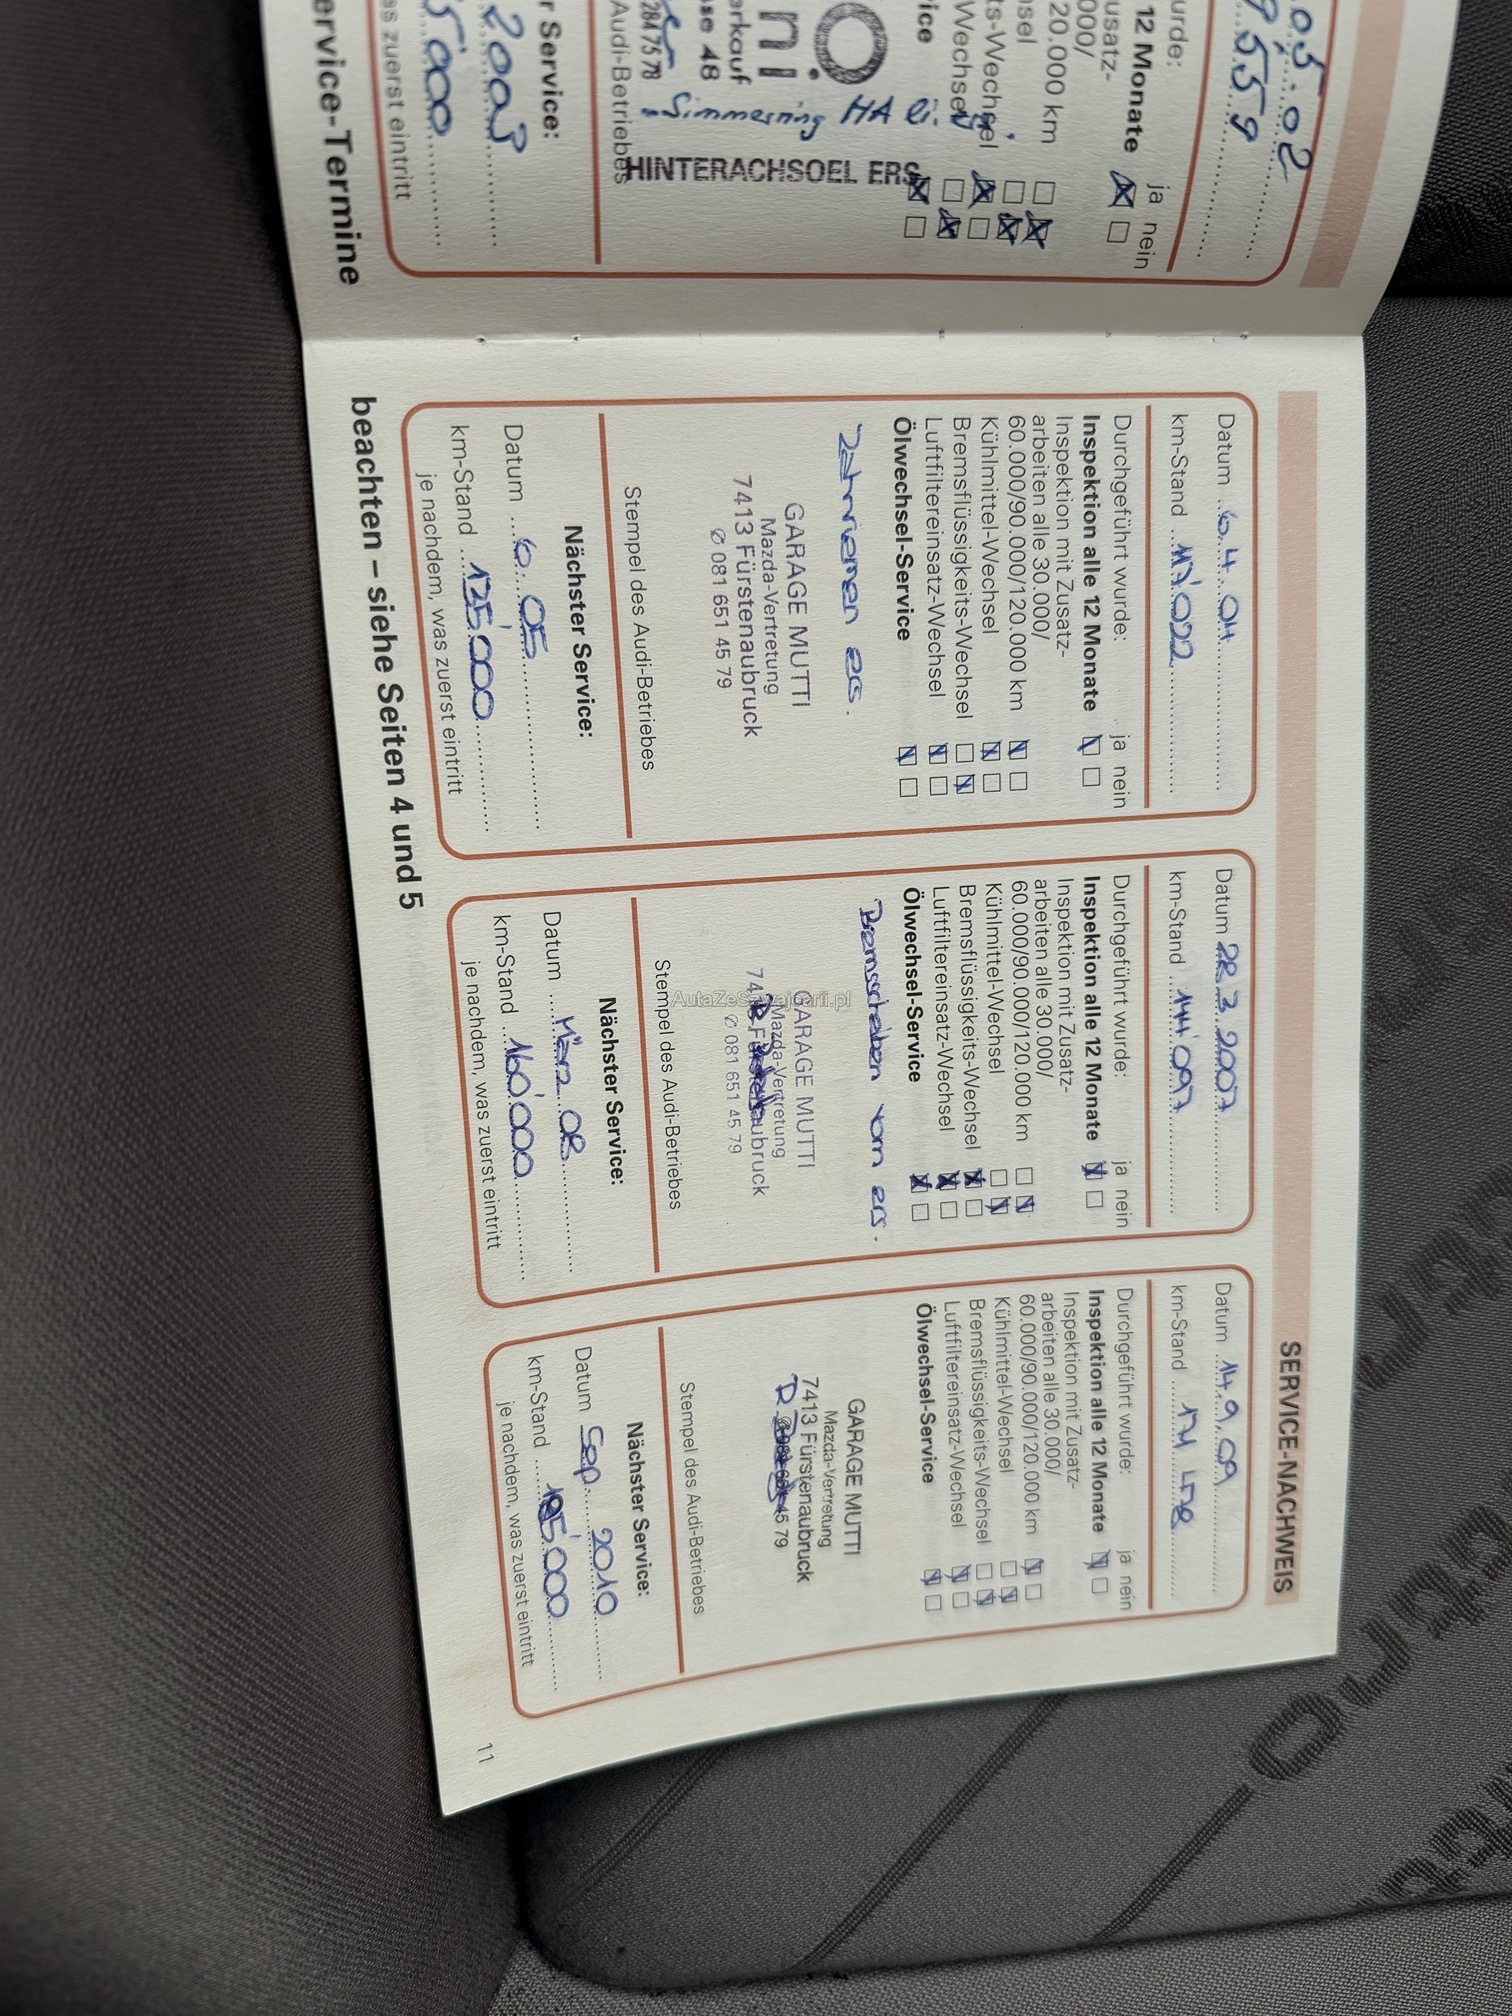 05.02
9559
urde:
ja nein
12 Monate
usatz-
000/
20.000 km
hsel
ts-Wechsel
Wechsel
vice
HINTERACHSOEL ERS
Simmerring HA li.
ni
erkauf
se 48
284 75 78
Audi-Betriebes
r Service:
2003
5'000
as zuerst eintritt
ervice-Termine
SERVICE-NACHWEIS
Datum 6.4.04
km-Stand 117'022
Durchgeführt wurde:
ja nein
Inspektion alle 12 Monate
Inspektion mit Zusatz-
arbeiten alle 30.000/
60.000/90.000/120.000 km
Kühlmittel-Wechsel
Bremsflüssigkeits-Wechsel
Luftfiltereinsatz-Wechsel
Ölwechsel-Service
Zahnriemen ers.
GARAGE MUTTI
Mazda-Vertretung
7413 Fürstenaubruck
✆ 081 651 45 79
Stempel des Audi-Betriebes
Nächster Service:
Datum 6. 05
km-Stand 125'000
je nachdem, was zuerst eintritt
Datum 28 3 2007
km-Stand 144'097
Durchgeführt wurde:
ja nein
Inspektion alle 12 Monate
Inspektion mit Zusatz-
arbeiten alle 30.000/
60.000/90.000/120.000 km
Kühlmittel-Wechsel
Bremsflüssigkeits-Wechsel
Luftfiltereinsatz-Wechsel
Ölwechsel-Service
Bremsscheiben vorn ers.
GARAGE MUTTI
Mazda-Vertretung
7413 Fürstenaubruck
✆ 081 651 45 79
AutaZeSzwajcarii.pl
Stempel des Audi-Betriebes
Nächster Service:
Datum März 08
km-Stand 160'000
je nachdem, was zuerst eintritt
Datum 14.9.09
km-Stand
Durchgeführt wurde:
ja nein
Inspektion alle 12 Monate
Inspektion mit Zusatz-
arbeiten alle 30.000/
60.000/90.000/120.000 km
Kühlmittel-Wechsel
Bremsflüssigkeits-Wechsel
Luftfiltereinsatz-Wechsel
Ölwechsel-Service
GARAGE MUTTI
Mazda-Vertretung
7413 Fürstenaubruck
45 79
Stempel des Audi-Betriebes
Nächster Service:
Datum Sep. 2010
km-Stand 185'000
je nachdem, was zuerst eintritt
beachten – siehe Seiten 4 und 5
11